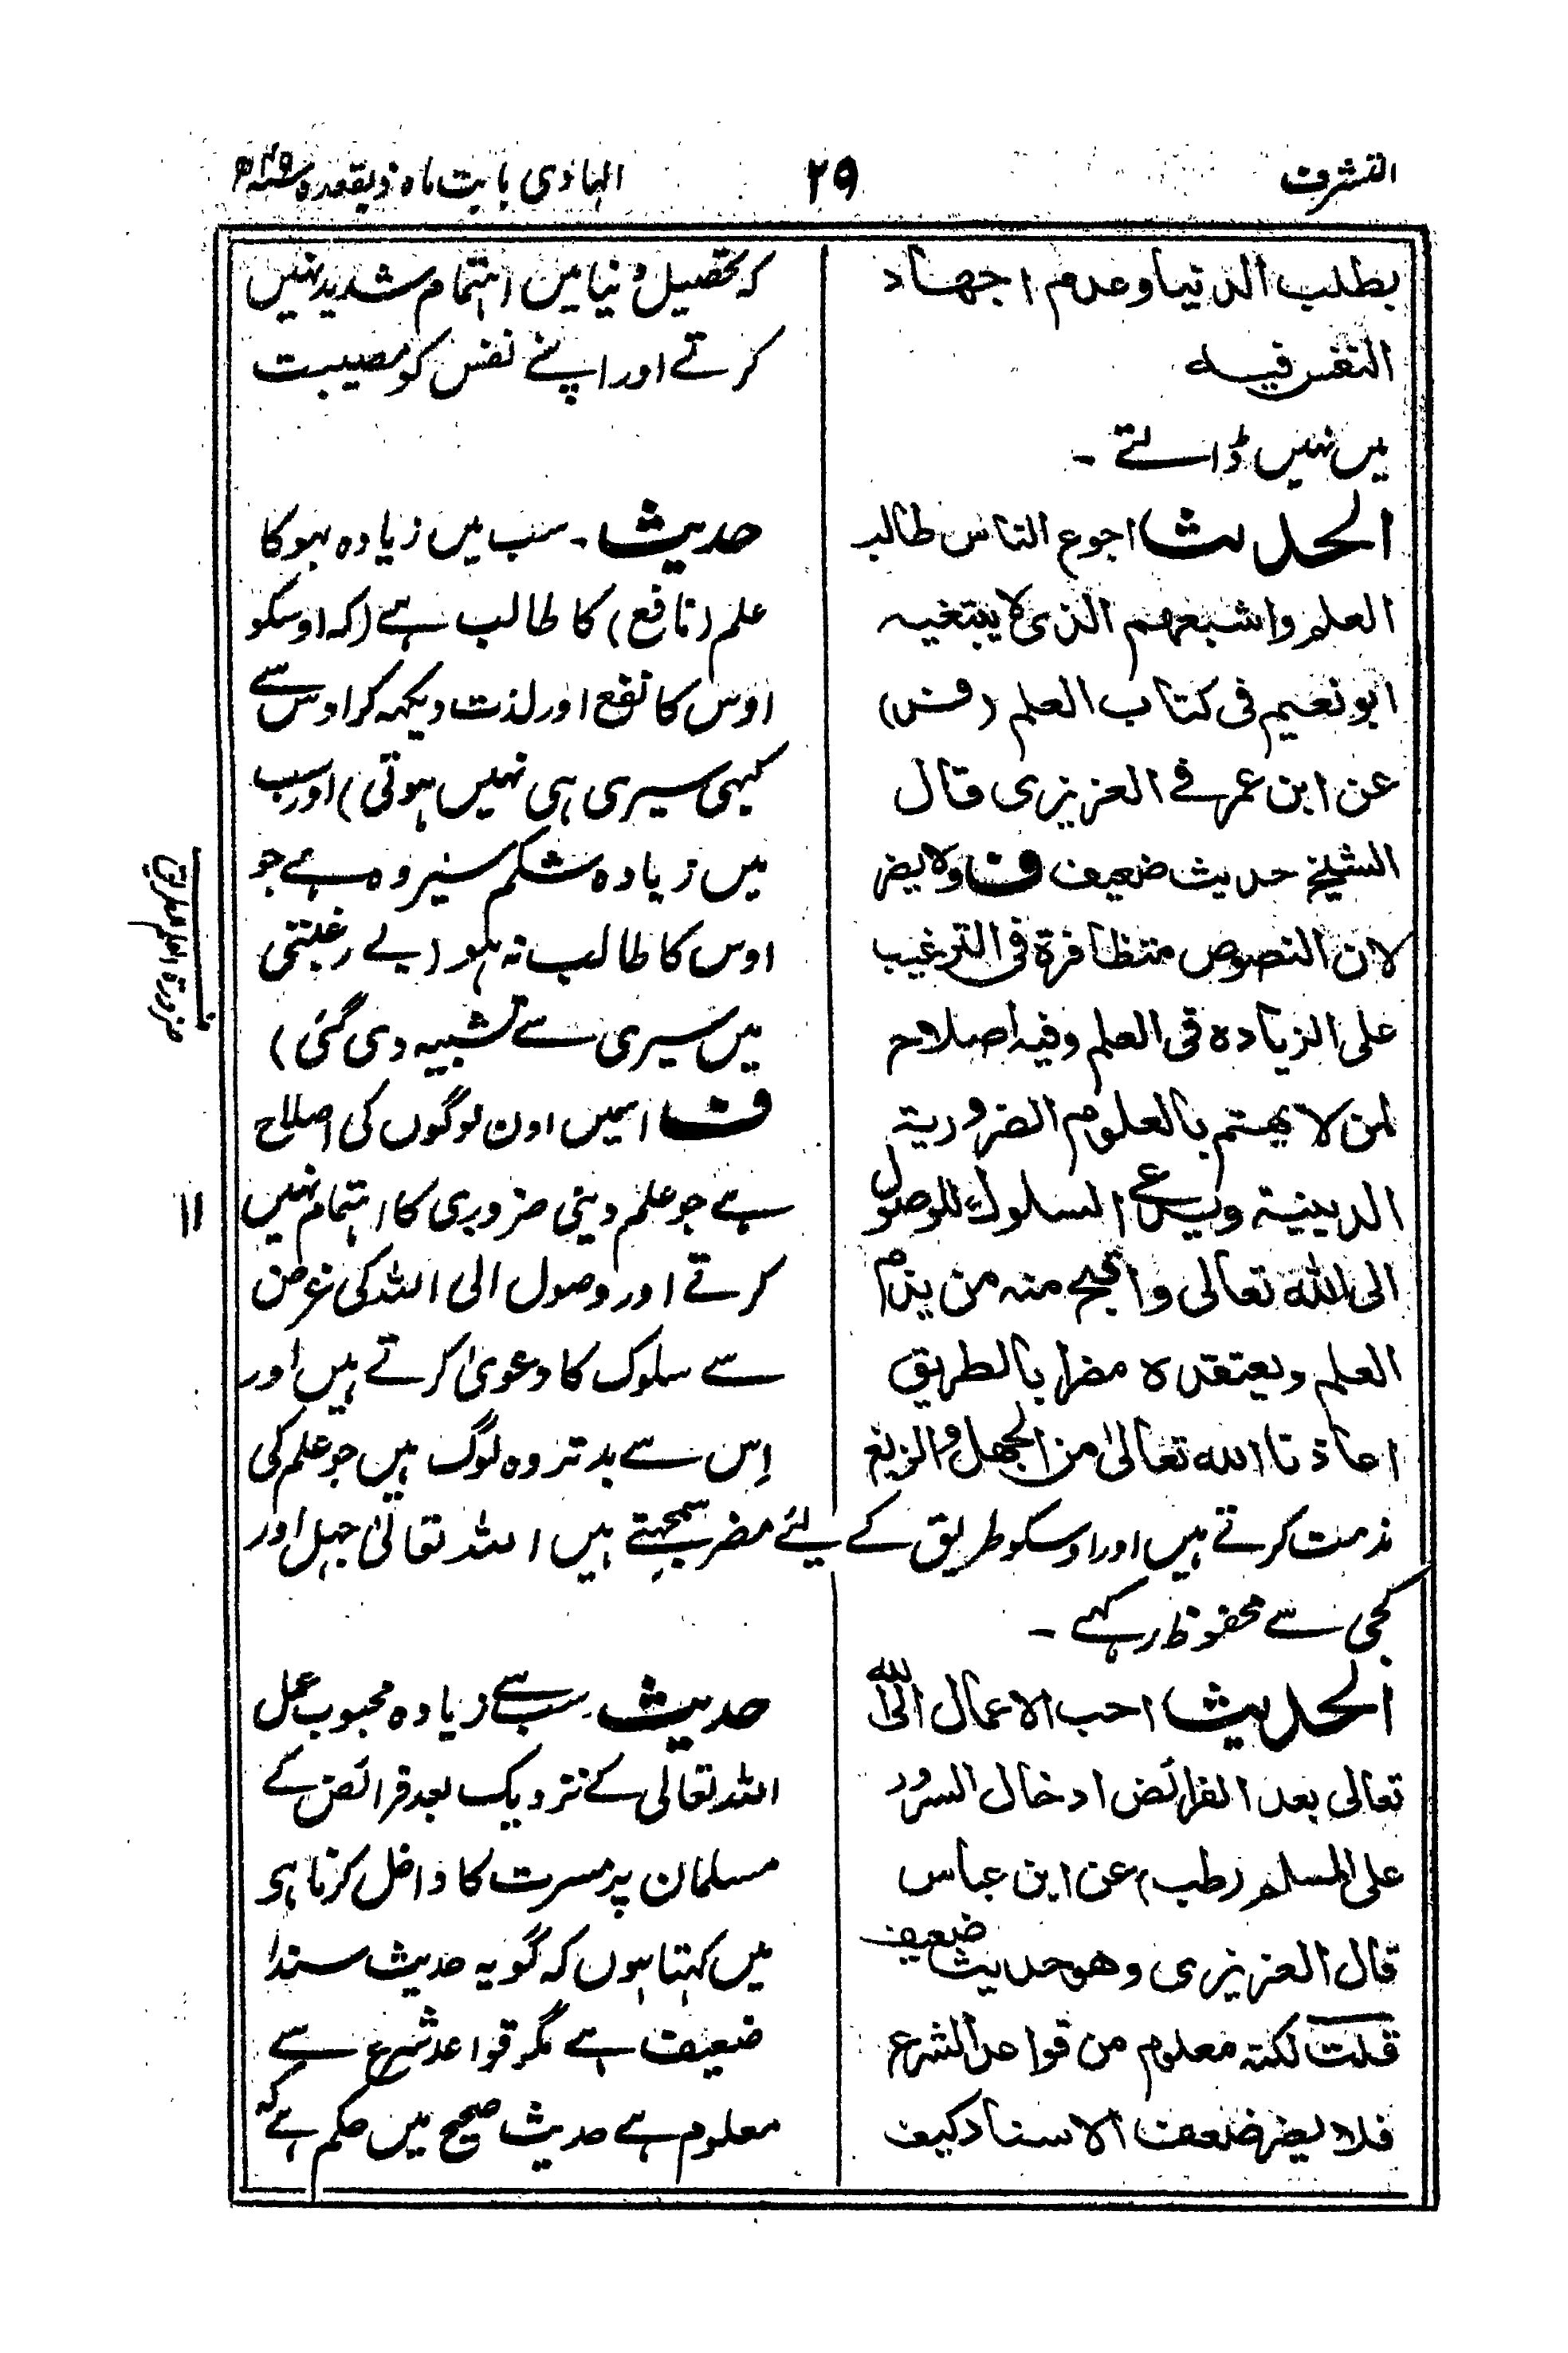 التشرف
۲۹
الہادی بابت ماہ ذیقعدہ
بطلب الدنیا وعدم اجھاد
النفس فیہ
کہ تحصیل دنیا میں اہتمام شدید نہیں
کرتے اور اپنے نفس کو مصیبت
میں نہیں ڈالتے ۔
الحدیث اجوع الناس طالب
العلم واشبعھم الذی لا یبتغیہ
ابو نعیم فی کتاب العلم (فن)
عن ابن عمر فی العزیزی قال
الشیخ حدیث ضعیف ف ولا یضر
لان النصوص متظافرۃ فی الترغیب
علی الزیادہ فی العلم وفیہ اصلاح
لمن لا یھتم بالعلوم الضروریۃ
الدینیۃ ویدعی السلوک للوصول
الی اللہ تعالی واقبح منہ من یذم
العلم ویعتقدہ مضرا بالطریق
اعاذنا اللہ تعالیٰ من الجھل والزیغ
حدیث ۔ سب میں زیادہ بہوکا
علم (نافع) کا طالب ہے (کہ اوسکو
اوس کا نفع اور لذت دیکھہ کر اوس سے
کبہی سیری ہی نہیں ہوتی) اور سب
میں زیادہ شکم سیر وہ ہے جو
اوس کا طالب نہ ہو (بے رغبتی
میں سیری سے تشبیہ دی گئی)
ف اسمیں اون لوگوں کی اصلاح
ہے جو علم دینی ضروری کا اہتمام نہیں
کرتے اور وصول الی اللہ کی غرض
سے سلوک کا دعویٰ کرتے ہیں اور
اِس سے بدتر وہ لوگ ہیں جو علم کی
مذمت کرتے ہیں اور اوسکو طریق کے لیٔے مضر سمجہتے ہیں اللہ تعالیٰ جہل اور
کجی سے محفوظ رکہے ۔
الحدیث احب الاعمال الی اللہ
تعالی بعد الفرائض ادخال السرور
علی المسلم (طب) عن ابن عباس
قال العزیزی وھو حدیث ضعیف
قلت لکنہ معلوم من قواعد الشرع
فلا یضر ضعف الاسناد کیف
حدیث ۔ سب سے زیادہ محبوب عمل
اللہ تعالی کے نزدیک بعد فرائض کے
مسلمان پر مسرت کا داخل کرنا ہی
میں کہتا ہوں کہ گو یہ حدیث سنداً
ضعیف ہے مگر قواعد شرع سے
معلوم ہے حدیث صحیح میں حکم ہے کہ
ضرورۃ العلم للطریق
۱۱